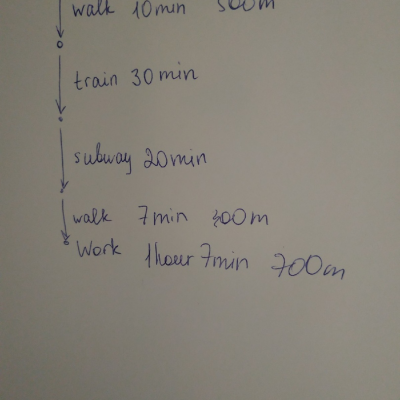 walk 10min
train 30min
subway 20min
walk 7min
Work 1hour 7min 700m